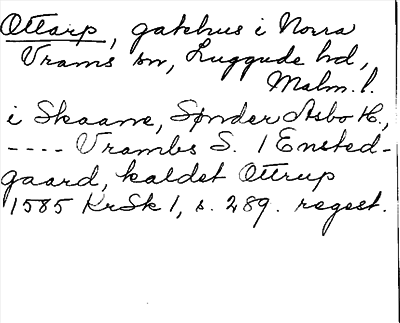 Ottarp, gatehus i Norra
Vrams sn, Luggude hd,
Malm. l.
i Skaane, Sønder Asbo H.,
---- Vrambs S. 1 Ensted-
gaard, kaldet Ottrup
1585 KrSk 1, s. 289. regest.